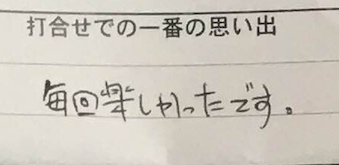 打合せでの一番の思い出
毎回楽しかったです。